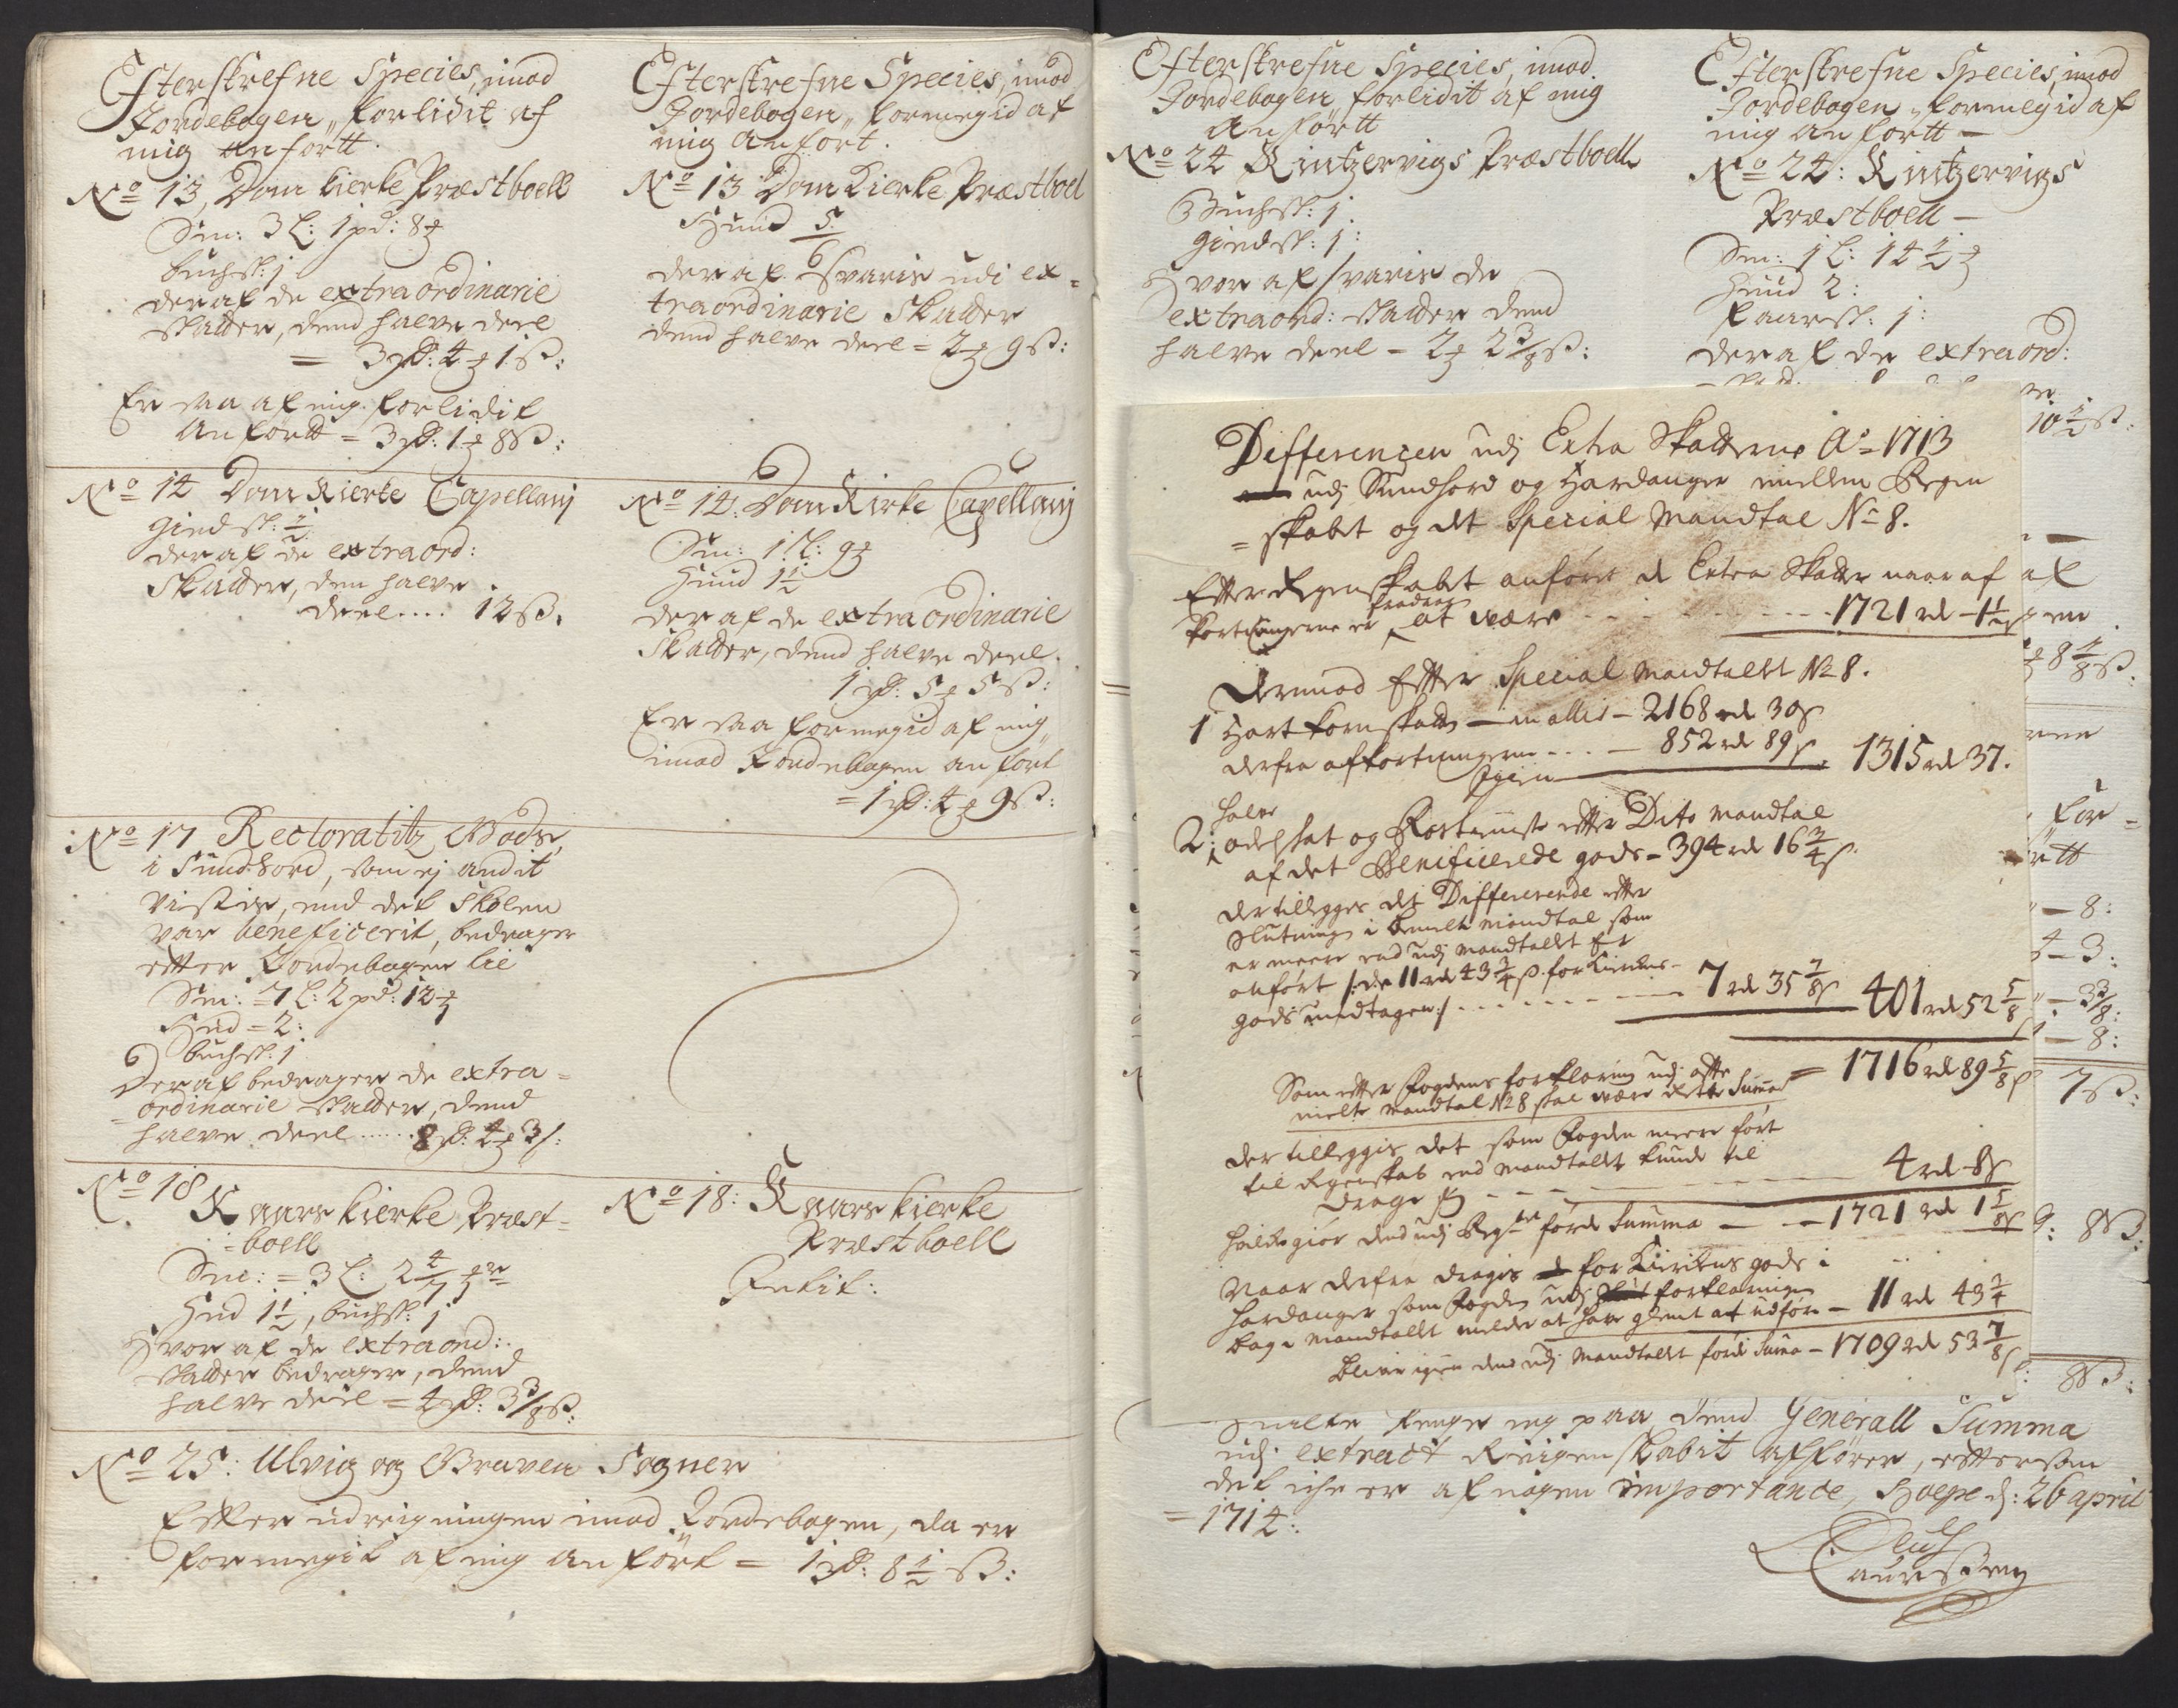 Efterskrefne Species, imod
Jordebogen, forlidit af
mig anførtt.
No 13, Dom Kierke Præstboell
Sm: 3 L: 1 pd: 8 ꝑ
buchsk: 1
deraf de extraordinarie
skatter, dend halve deel
= 3 rd: 4 ꝑ 1 ß:
Er saa af mig forlidit
Anførtt = 3 rd: 1 ꝑ 8 ß:
No 14 Dom Kierke Capellanj
giedsk: 1/2
deraf de extraord:
Skatter, den halve
deel.... 12 ß.
No 17 Rectoratitz Gods,
i Sundhord, som ej andit
vistes, end det Skolen
var beneficerit, bedrager
efter Jordebogen til
Sm: = 7 L: 2 pd: 12 ꝑ
Hud = 2:
buchsk: 1
Deraf bedrager de extra=
=ordinarie skatter, dend
halve deel...... 8 rd: 4 ꝑ 3 ß:
No 18 Kaars Kierke Præst=
=boell
Sm: = 3 L: 2 4/7 ꝑr
Hud 1 1/2, buchsk: 1
Hvor af de extraord:
skatter bedrager, dend
halve deel = 4 rd: 3 3/8 ß:
No 25: Ulvig og Graven Sogner
Efter udreigningen imod Jordebogen, da er
formegit af mig anført = 1 rd: 8 1/2 ß:
Efterskrefne Species, imod
Jordebogen, formegid af
mig anfort.
No 13 Dom Kierke Præstboel
Huud 5
deraf svaris udi ex=
traordinarie Skatter
dend halve deel = 2 ꝑ 9 ß:
No 14: Dom Kirke Capellanj
Sm: 1 L: 9 ꝑ
Huud 1 1/2
deraf de extraordinarie
Skatter, dend halve deel.
1 rd: 5 ꝑ 5 ß:
Er saa formegid af mig,
imod Jordebogen anført
= 1 rd: 4 ꝑ 9 ß:
No 18: Kaars Kierke
Præstboell
Rektit:
Efterskrefne Species, imod
Jordebogen, forlidit af mig
Anførtt
No 24 Kintzervigs Præstboell
Buchsk: 1:
giedsk: 1:
Hvor af svaris de
extraord: skatter dend
halve deel = 2 ꝑ 2 3/8 ß:
Efterskrefne Species, imod
Jordebogen, formegid af
mig anfortt —
No 24: Kintzervigs
Præstboell —
Sm: 1 L: 14 1/2 ꝑ
Huud 2:
faarsk: 1:
deraf de extraord:
10 1/2 ß:
Differencen udj Extra Skatterne Ao 1713
udj Sundhord og Hardanger imellem Regen
=skabet og det Special Mandtal No 8.
Efter Regenskabet anføres de Extra Skatter naar af
kortningerne er fradragen at være - - - - 1721 rd - 1 1/2 ß
Derimod Efter Special Mandtallet No 8.
1 Hartkornskatt — in alles — 2168 rd 30 ß
derfra afkortningerne - - - — 852 rd 89 ß
Igien 1315 rd 37.
2: halve odelskat og Rostieniste efter Dito Mandtal
af det Benificerede gods - 394 rd 16 3/4 ß
der tillegges det Differerende efter
Slutning i bemelte Mandtal som
er meere end udj Mandtallet Er
anført /: de 11 rd 43 3/4 ß for Kirkens
gods undtagen :/ - - - - 7 rd 35 7/8 ß 401 rd 52 5/8 ß
Som efter Fogdens forklaring udj ofte
melte Mandtal No 8 skal være dette Summa = 1716 rd 89 5/8 ß
der tilleggis det som Fogden meere ført
til Regenskab end Mandtallet kunde til
drage sig - - - - 4 rd 8 ß
huilke giør dend udj Regsk. førde Summa — 1721 rd 1 5/8 ß
Naar derfra dragis for Kirkens gods i
Hardanger som Fogden udj forklaringen
bag i Mandtallet melder at have glemt at udføre — 11 rd 43 3/4
bliver igien dend udj Mandtallet førde Suma — 1709 rd 53 7/8 ß
af
8 4/8 ß:
for=
— 8:
— 3:
— 3 3/8:
— 8:
7 ß:
9: 8 ß:
8 ß:
paa dend Generall Summa
udj extract Reigenskabit afføres, eftersom
det iche er af nogen importance, Hoepe d: 26 april
= 1714:
Oluf
Laurssen